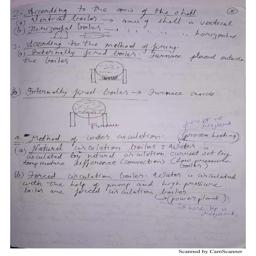 2. According to the axis of the shell
(a) Vertical boiler → axis of shell is vertical
(b) Horizontal boiler → " " " " horizontal
3. According to the method of firing
(a) Externally fired boiler: Furnace placed outside
the boiler
b) Internally fired boiler → Furnace inside
Furnace
Method of water circulation:
(a) Natural circulation boiler: Water is
circulated by natural circulation current set by
temperature difference (low pressure
boiler)
(b) Forced circulation boiler: Water is circulated
with the help of pump and high pressure
boiler are forced circulation boiler
(power plant)
Scanned by CamScanner